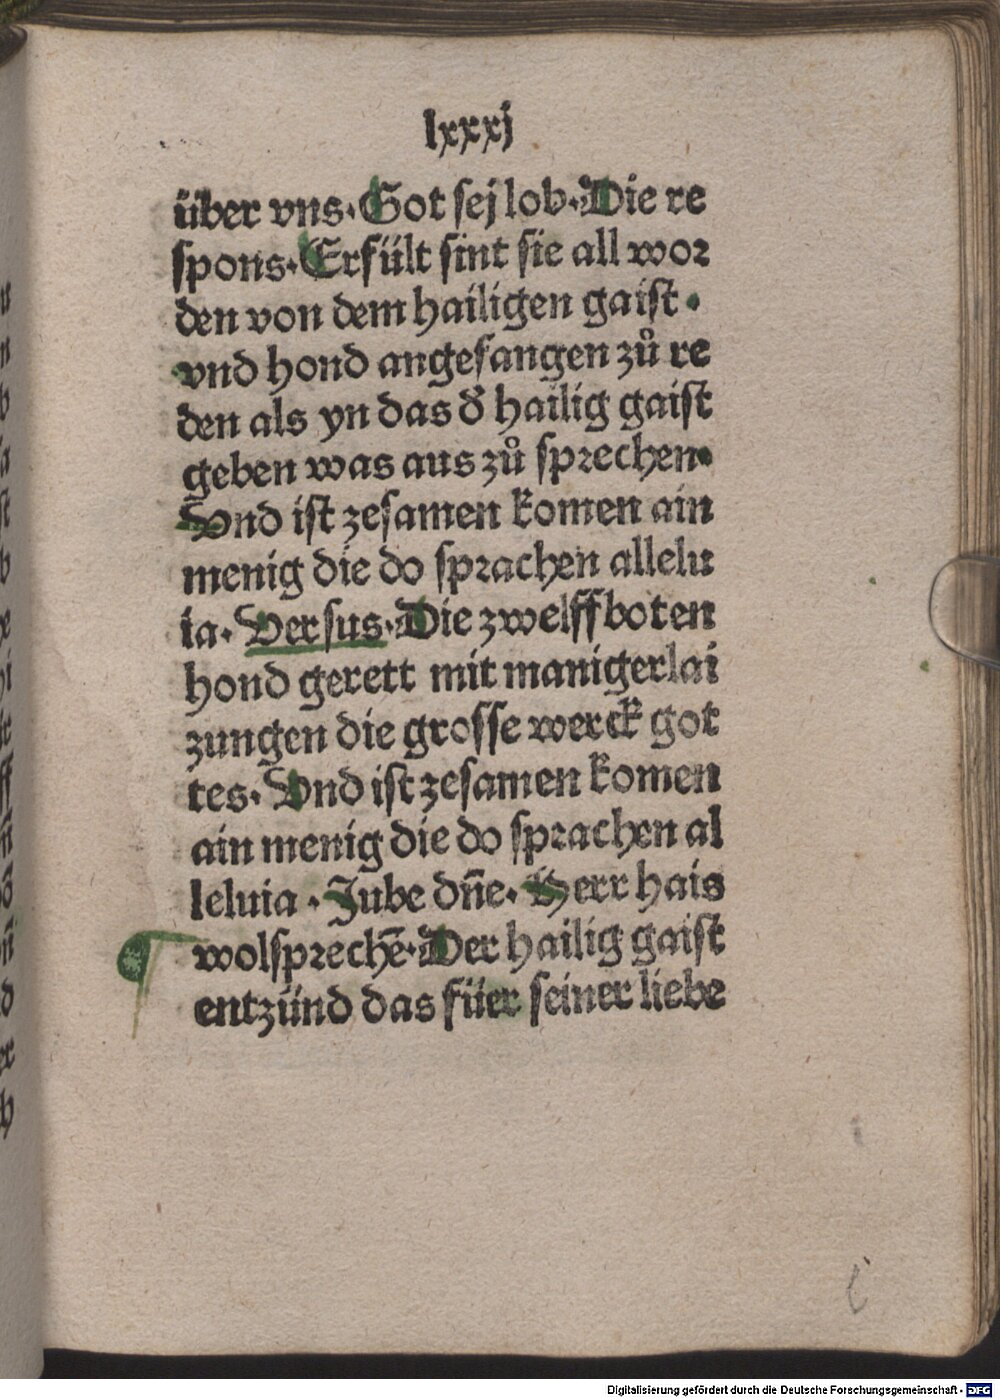 lxxxj
über vns. Got sej lob. Die re
spons. Erfült sint sie all wor
den von dem hailigen gaist.
vnd hond angefangen zů re
den als yn das d̕ hailig gaist
geben was aus zů sprechen.
Vnd ist zesamen komen ain
menig die do sprachen allelu
ia. Versus. Die zwelffboten
hond gerett mit manigerlai
zungen die grosse werck got
tes. Vnd ist zesamen komen
ain menig die do sprachen al
leluia. Jube dn̄e. Herr hais
wolsprechē. Der hailig gaist
entzünd das füer seiner liebe
Digitalisierung gefördert durch die Deutsche Forschungsgemeinschaft - DFG